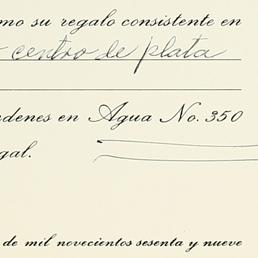 mo su regalo consistente en
centro de plata
rdenes en Agua No. 350
gal.
de mil novecientos sesenta y nueve